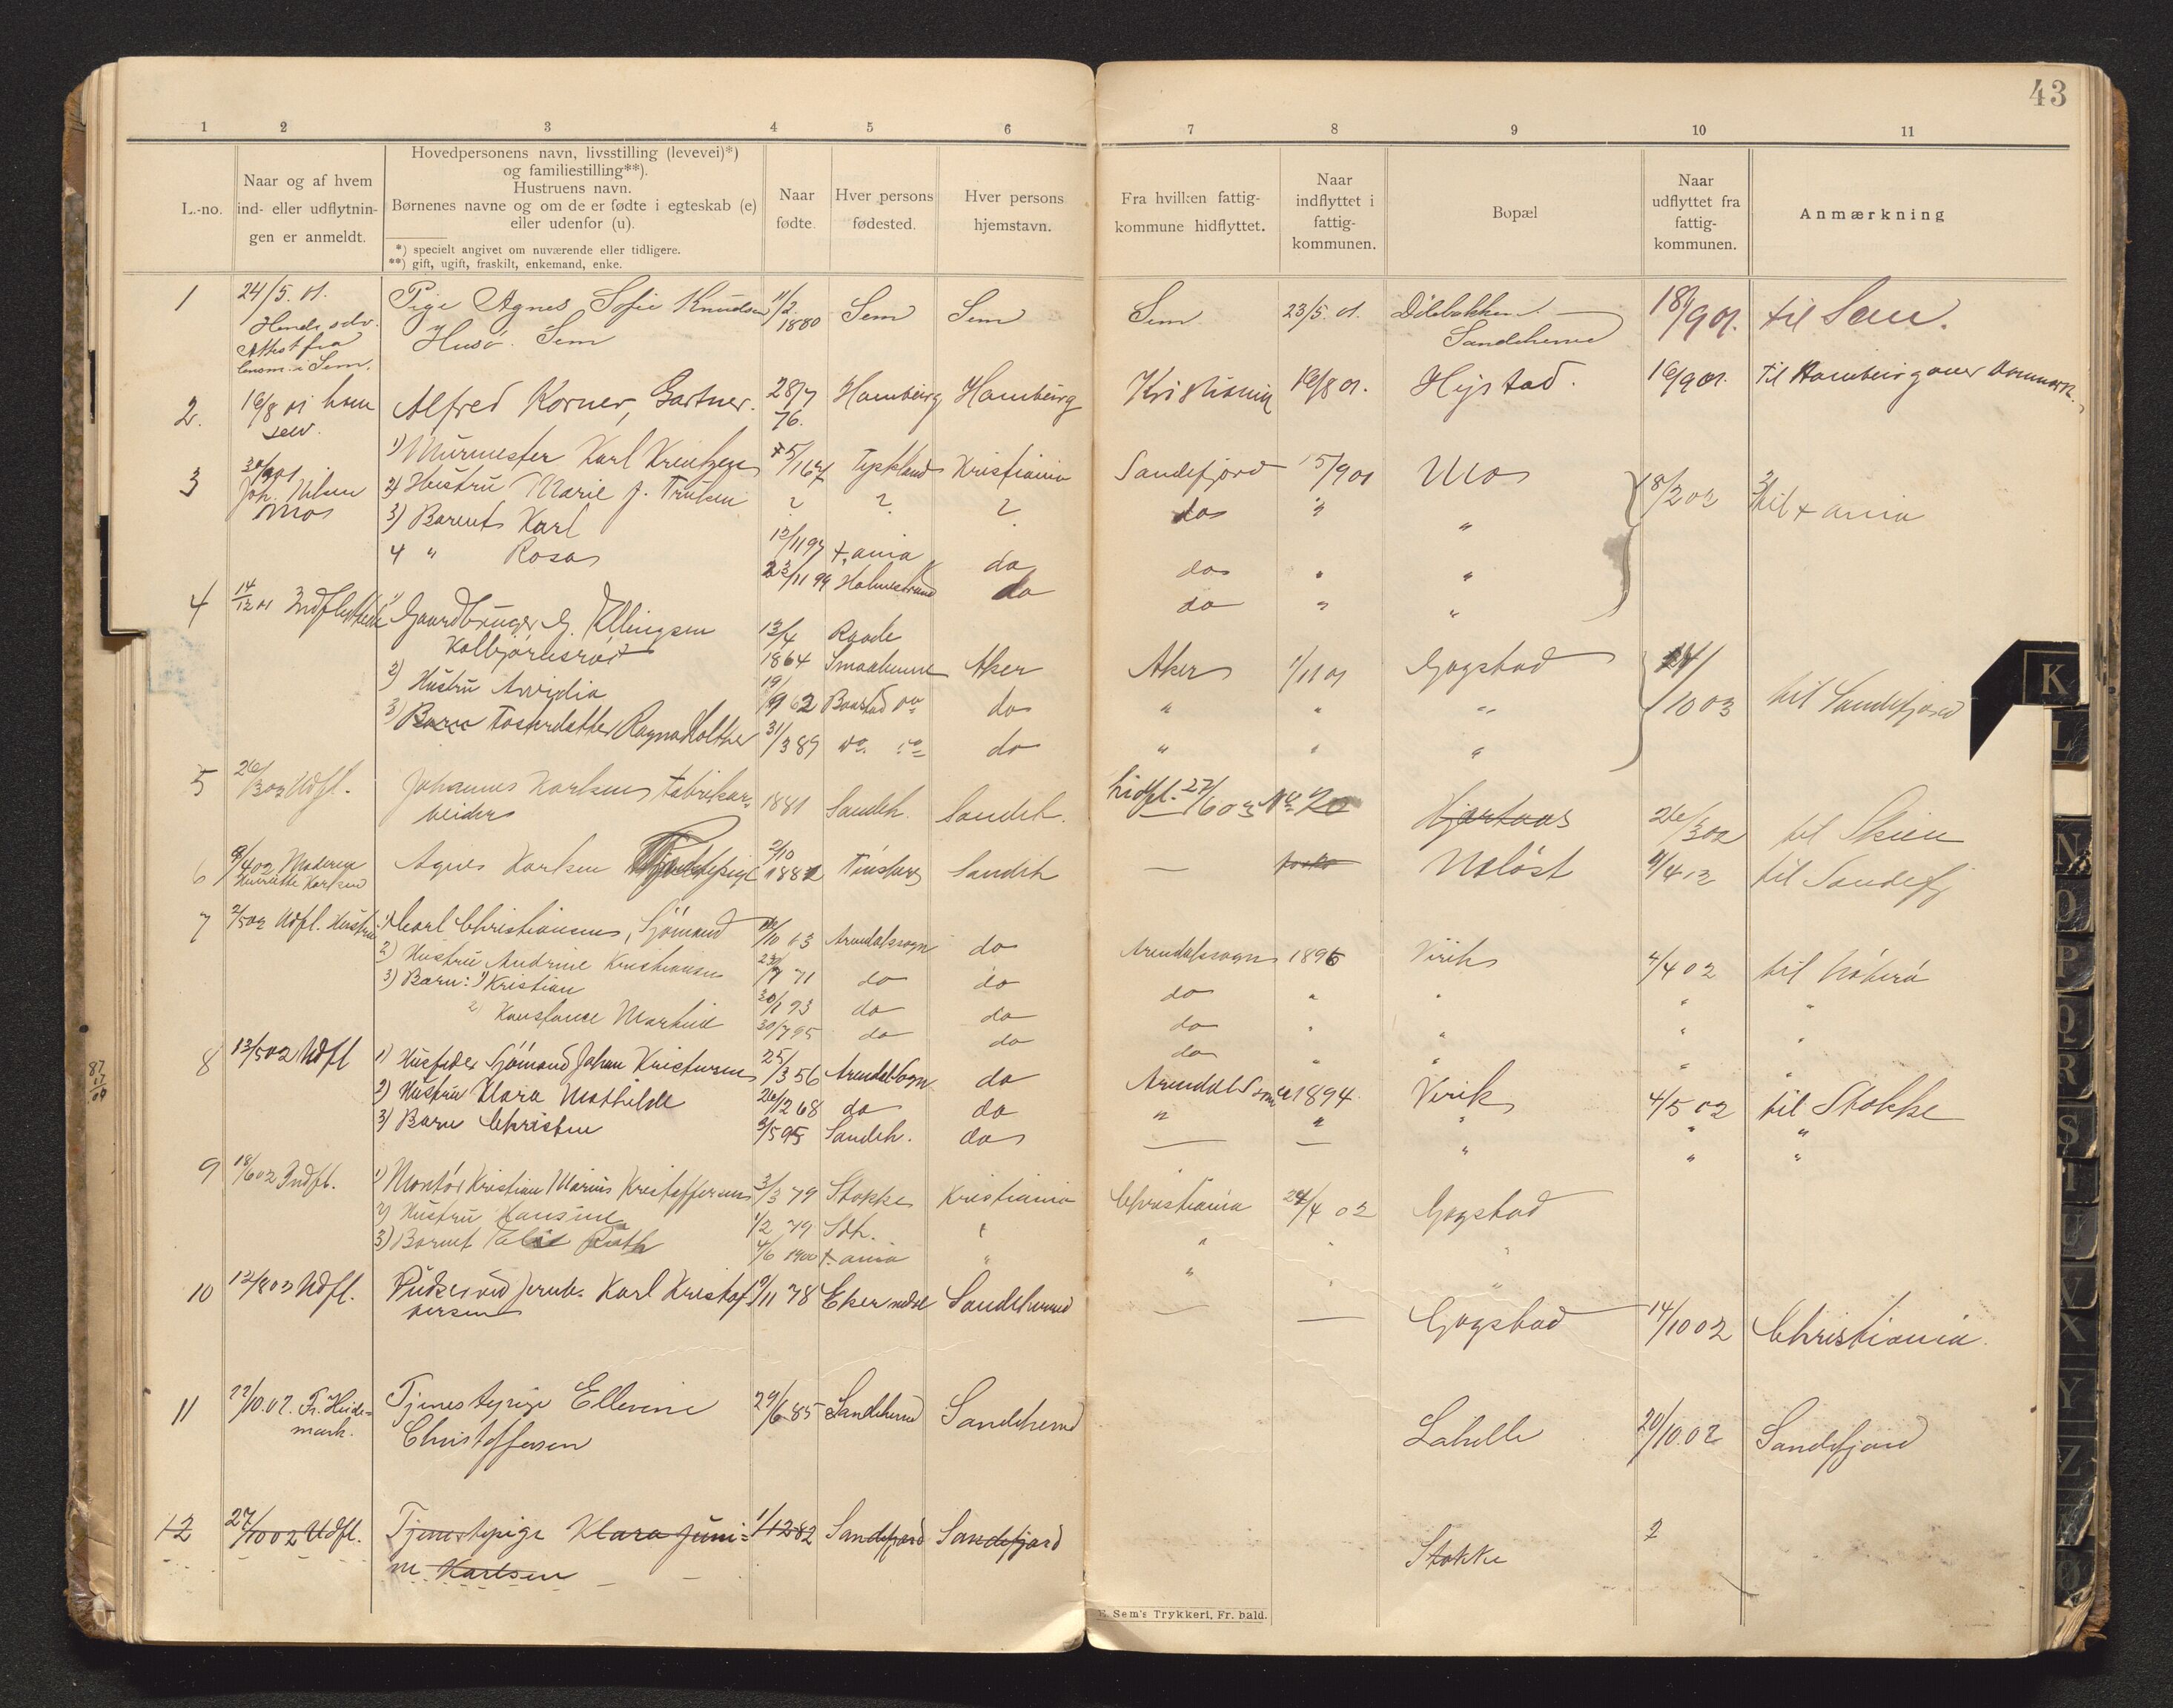 43
1 2 3 4 5 6 7 8 9 10 11
L.-no.
Naar og af hvem
ind- eller udflytnin-
gen er anmeldt.
Hovedpersonens navn, livsstilling (levevei)*)
og familiestilling**).
Hustruens navn.
Børnenes navne og om de er fødte i egteskab (e)
eller udenfor (u).
*) specielt angivet om nuværende eller tidligere.
**) gift, ugift, fraskilt, enkemand, enke.
Naar
fødte.
Hver persons
fødested.
Hver persons
hjemstavn.
Fra hvilken fattig-
kommune hidflyttet.
Naar
indflyttet i
fattig-
kommunen.
Bopæl
Naar
udflyttet fra
fattig-
kommunen.
Anmærkning
1 24/5. 01. Pige Agnes Sofie Knudsen 11/2. 1880 Sem Sem Sem 23/5. 01. 18/9 01. til Sem.
Attest fra Husö. Sem Sandeherred
lensm. i Sem.
2. 16/8 01 ham Alfred Korner, Gartner. 28/7 Hamburg Hamburg Kristiania 16/8 01. Hystad. 16/9 01. Til Hamburg over Danmark.
selv. 76.
3 Joh. Nilsen 1) Murmester Karl Kreutzen Tyskland Kristiania Sandefjord 15/9 01 Mo 18/2 02 til + ania
Mo 2) Hustru Marie J. ? ? ? do "
3) Barnet Karl 12/11 97 + ania do do " "
4 " Rosa 23/11 99 Holmestrand do do " "
4 14/12 01 Indflyttede 1) Gaardbruger G. Ellingsen 13/4 Raade
Kolbjørnsröd 1864 Smaalenene Aker Aker 1/11 01 Gogstad 14/10 03 til Sandefjord
2) Hustru Arvidia 19/9 62 Baastad do do " " "
3) Barn Fosterdatter Ragna Holther 31/3 89 do do do " " "
5 26/3 02 Udfl. Johannes Karlsen fabrikar- 1881 Sandeh. Sandeh. hidfl. 27/6 03 Hjertaas 26/3 02 til Skien
beider
6 8/4 02 Moderen Agnes Karlsen 2/10 1882 Sandeh — Nöløst 9/4 02 til Sandefj
Henriette Karlsen
7 2/5 02 Udfl. Hustru 1) Carl Christiansen, Sjömand 10/10 63 Arendalssogn do Arendalssogn 1896 Virik 2/4 02 til Nöterö
2) Hustru Andrine Kristiansen 23/7 71 do do do " " " "
3) Barn: 1) Kristian 30/1 93 do do do " " " "
2) Konstance Martine 30/7 95 do do do " " " "
8 13/5 02 Udfl 1) Husfader Sjömand Johan Kristensen 25/3 56 Arendal Sogn do Arendal Sogn 1894. Virik 4/5 02 til Stokke
2) Hustru Klara Mathilde 26/12 68 do do " " " " "
3) Barn Christen 3/5 95 Sandeh. do — — " " "
9 18/6 02 Indfl. 1) Montör Kristian Marius Kristoffersen 3/3 79 Stokke Kristiania Christiania 24/4 02 Gogstad
2) Hustru Hansine 1/2 79 Sdh. " " " "
3) Barnet Ruth 4/6 1900 + ania " " " "
10 12/8 02 Udfl. Pudser ved jernb. Karl Kristof- 9/11 78 Eker Sandeherred — — Gogstad 14/10 02 Christiania.
fersen
11 22/10. 02. Fr. Heide- Tjenestepige Ellevine 29/6 85 Sandeherred Sandeherred Lahelle 20/10. 02 Sandefjord
mark. Christoffersen
12 27/10 02 Udfl. Tjenestepige Klara Juni- 1/12 82 Sandefjord Sandefjord Stokke ?
ne Karlsen
E. Sem's Trykkeri, Fr. hald.
87
17
09
K
L
N
O
P
Q
R
S
T
U
V
X
Y
Z
Æ
Ø